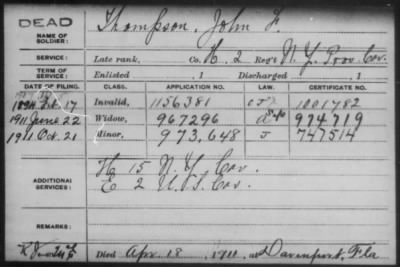 DEAD
NAME OF SOLDIER: Thompson, John F.
SERVICE: Late rank, Co. H, 2 Reg't N.Y. Prov. Cav.
TERM OF SERVICE: Enlisted , 1 Discharged , 1
DATE OF FILING. CLASS. APPLICATION NO. LAW. CERTIFICATE NO.
17 Invalid, 1156381 1001782
1911 June 22 Widow, 967296 974719
1911 Oct. 21 Minor, 973,648 747514
ADDITIONAL SERVICES: H 15 N.Y. Cav.
E 2 U.S. Cav.
REMARKS:
Died Apr. 18, 1911, at Davenport, Fla